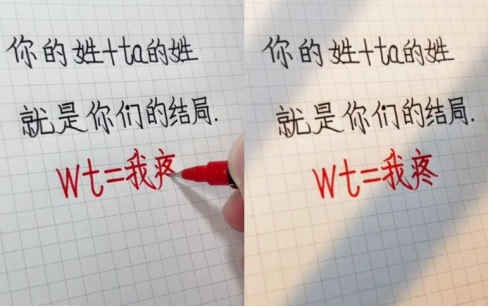 你的姓+ta的姓
就是你们的结局.
wt=我疼
你的姓+ta的姓
就是你们的结局.
wt=我疼